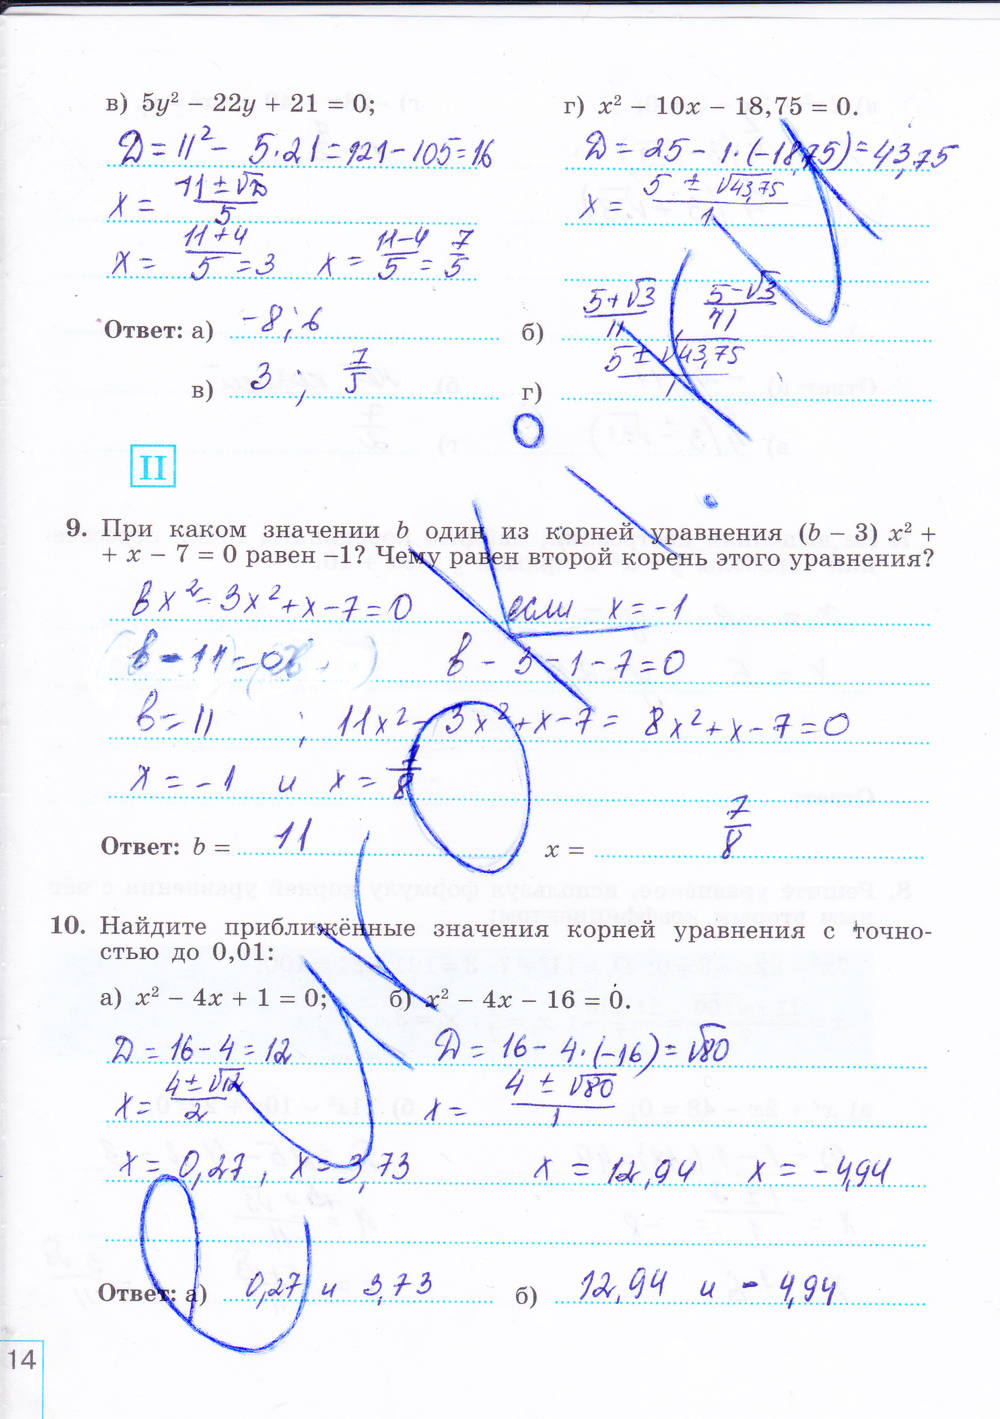 в) 5y² − 22y + 21 = 0;
D = 11² − 5·21 = 121 − 105 = 16
x = (11 ± √D)/5
x = (11+4)/5 = 3 x = (11−4)/5 = 7/5
г) x² − 10x − 18,75 = 0.
D = 25 − 1·(−18,75) = 43,75
x = (5 ± √43,75)/1
Ответ: а) −8; 6 б) (5+√3)/11 (5−√3)/11
в) 3 ; 7/5 г) (5 ± √43,75)/1
II
9. При каком значении b один из корней уравнения (b − 3) x² +
+ x − 7 = 0 равен −1? Чему равен второй корень этого уравнения?
вx² − 3x² + x − 7 = 0 если x = −1
в − 11 = 0 в − 3 − 1 − 7 = 0
в = 11 ; 11x² − 3x² + x − 7 = 8x² + x − 7 = 0
x = −1 и x = 7/8
Ответ: b = 11 x = 7/8
10. Найдите приближённые значения корней уравнения с точно-
стью до 0,01:
а) x² − 4x + 1 = 0; б) x² − 4x − 16 = 0.
D = 16 − 4 = 12 D = 16 − 4·(−16) = √80
x = (4 ± √12)/2 x = (4 ± √80)/1
x = 0,27, x = 3,73 x = 12,94 x = −4,94
Ответ: а) 0,27 и 3,73 б) 12,94 и − 4,94
14